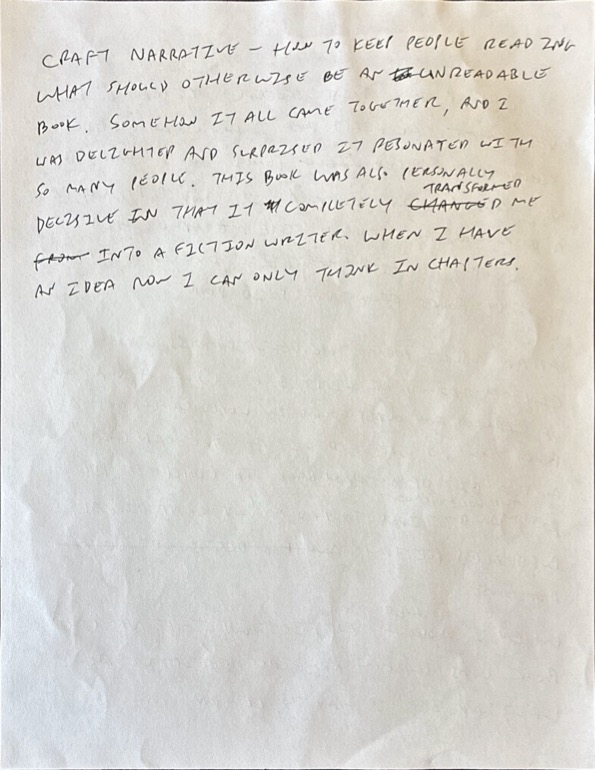 CRAFT NARRATIVE – HOW TO KEEP PEOPLE READING
WHAT SHOULD OTHERWISE BE AN UNREADABLE
BOOK. SOMEHOW IT ALL CAME TOGETHER, AND I
WAS DELIGHTED AND SURPRISED IT RESONATED WITH
SO MANY PEOPLE. THIS BOOK WAS ALSO PERSONALLY
TRANSFORMED
DECISIVE IN THAT IT COMPLETELY CHANGED ME
FROM INTO A FICTION WRITER. WHEN I HAVE
AN IDEA NOW I CAN ONLY THINK IN CHAPTERS.